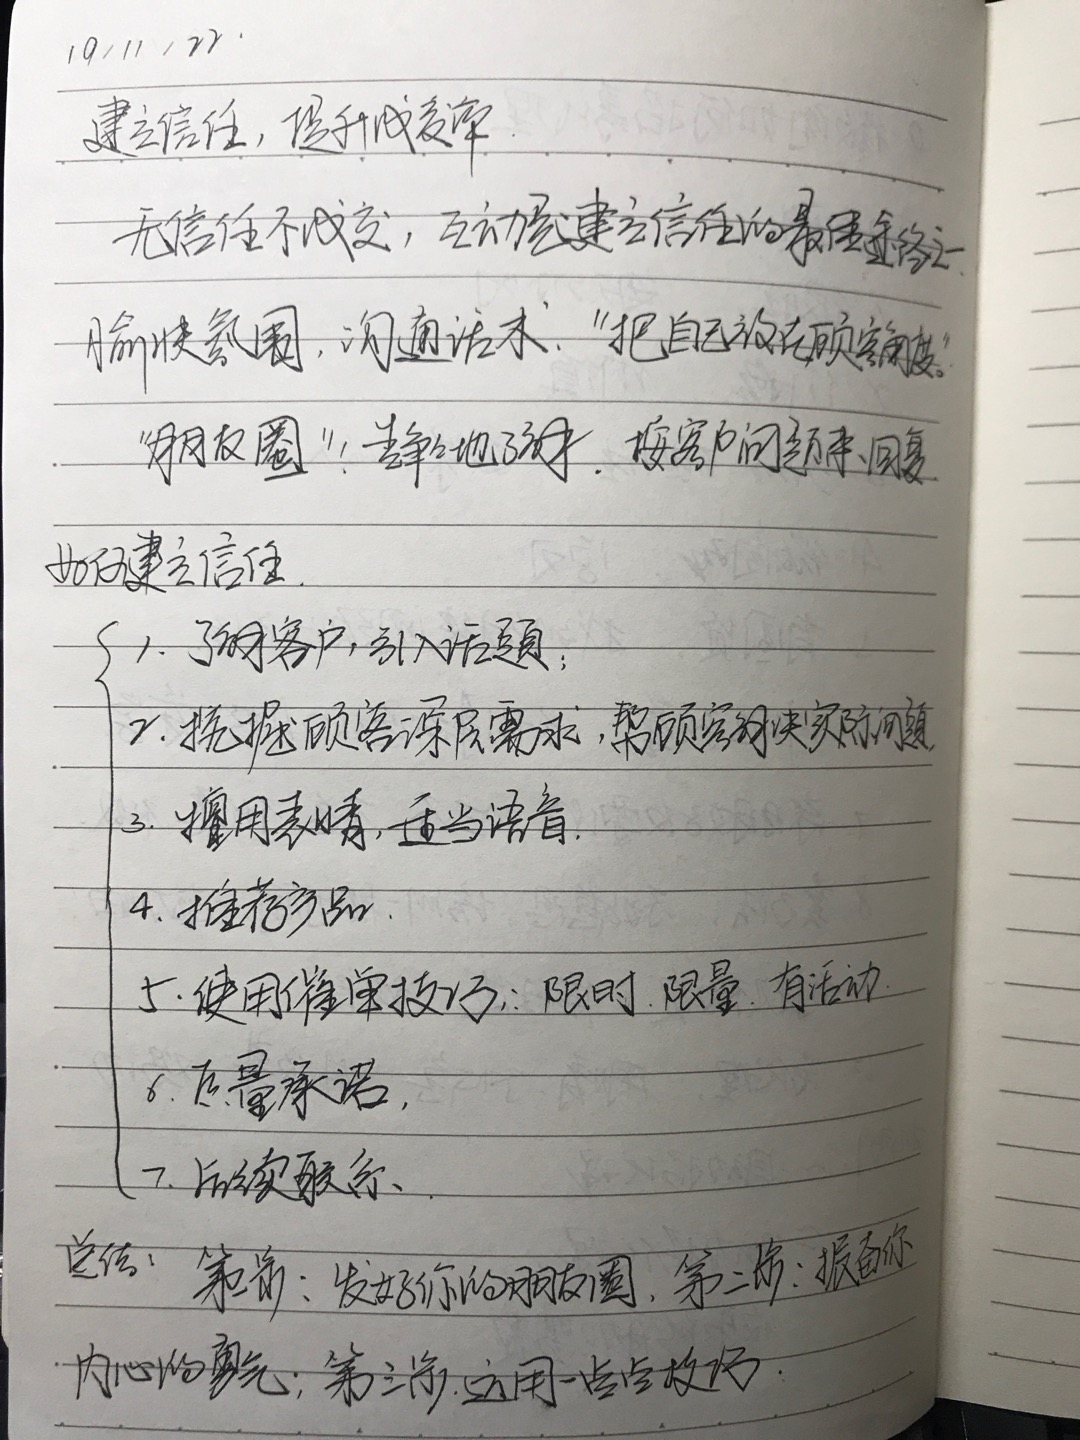 19/11/22.
建立信任，提升成交率.
无信任不成交，互动是建立信任的最佳途径之一.
愉快氛围，沟通话术，"把自己放在顾客角度。"
"朋友圈"：去了解. 按客户问题来回复
如何建立信任.
1. 了解客户，引入话题；
2. 挖掘顾客深层需求，帮顾客解决实际问题
3. 擅用表情，适当语音.
4. 推荐产品.
5. 使用催单技巧：限时. 限量. 有活动.
6. 质量承诺，
7. 后续联系、.
总结：第一步：发好你的朋友圈，第二步：振奋你
内心的勇气；第三步. 运用一点点技巧.